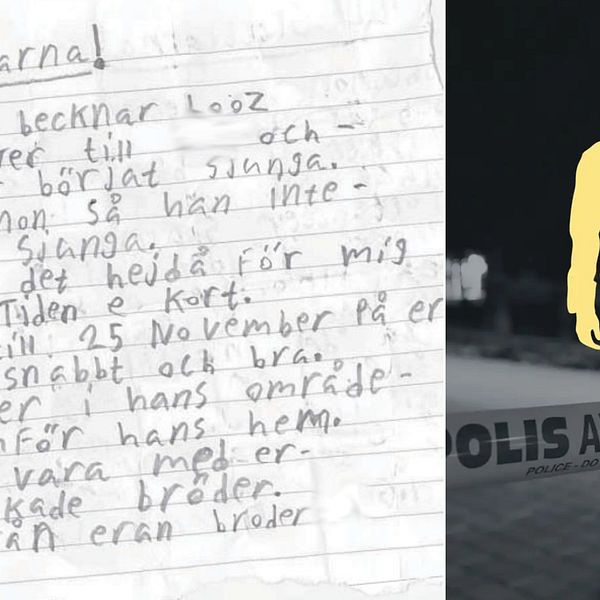 arna!
becknar Looz
ver till och -
börjat sjunga.
non så han inte -
sjunga.
det hejdå för mig
Tiden e kort.
till 25 November på er
snabbt och bra.
er i hans område -
nför hans hem.
vara med er -
kade bröder.
ån eran broder
POLIS A
POLICE - DO